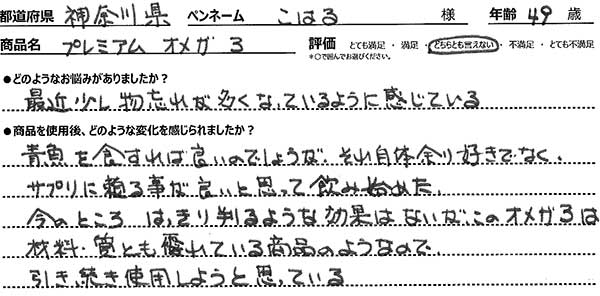 都道府県 神奈川県 ペンネーム こはる 様 年齢 49 歳
商品名 プレミアム オメガ 3 評価 とても満足・満足・どちらとも言えない・不満足・とても不満足
*○で囲んでお選びください。
●どのようなお悩みがありましたか?
最近少し物忘れが多くなっているように感じている
●商品を使用後、どのような変化を感じられましたか?
青魚を食すれば良いのでしょうが、それ自体余り好きでなく、
サプリに頼る事が良いと思って飲み始めた。
今のところ はっきり判るような効果はないが、このオメガ3は
材料・質とも優れている商品のようなので、
引き続き使用しようと思っている